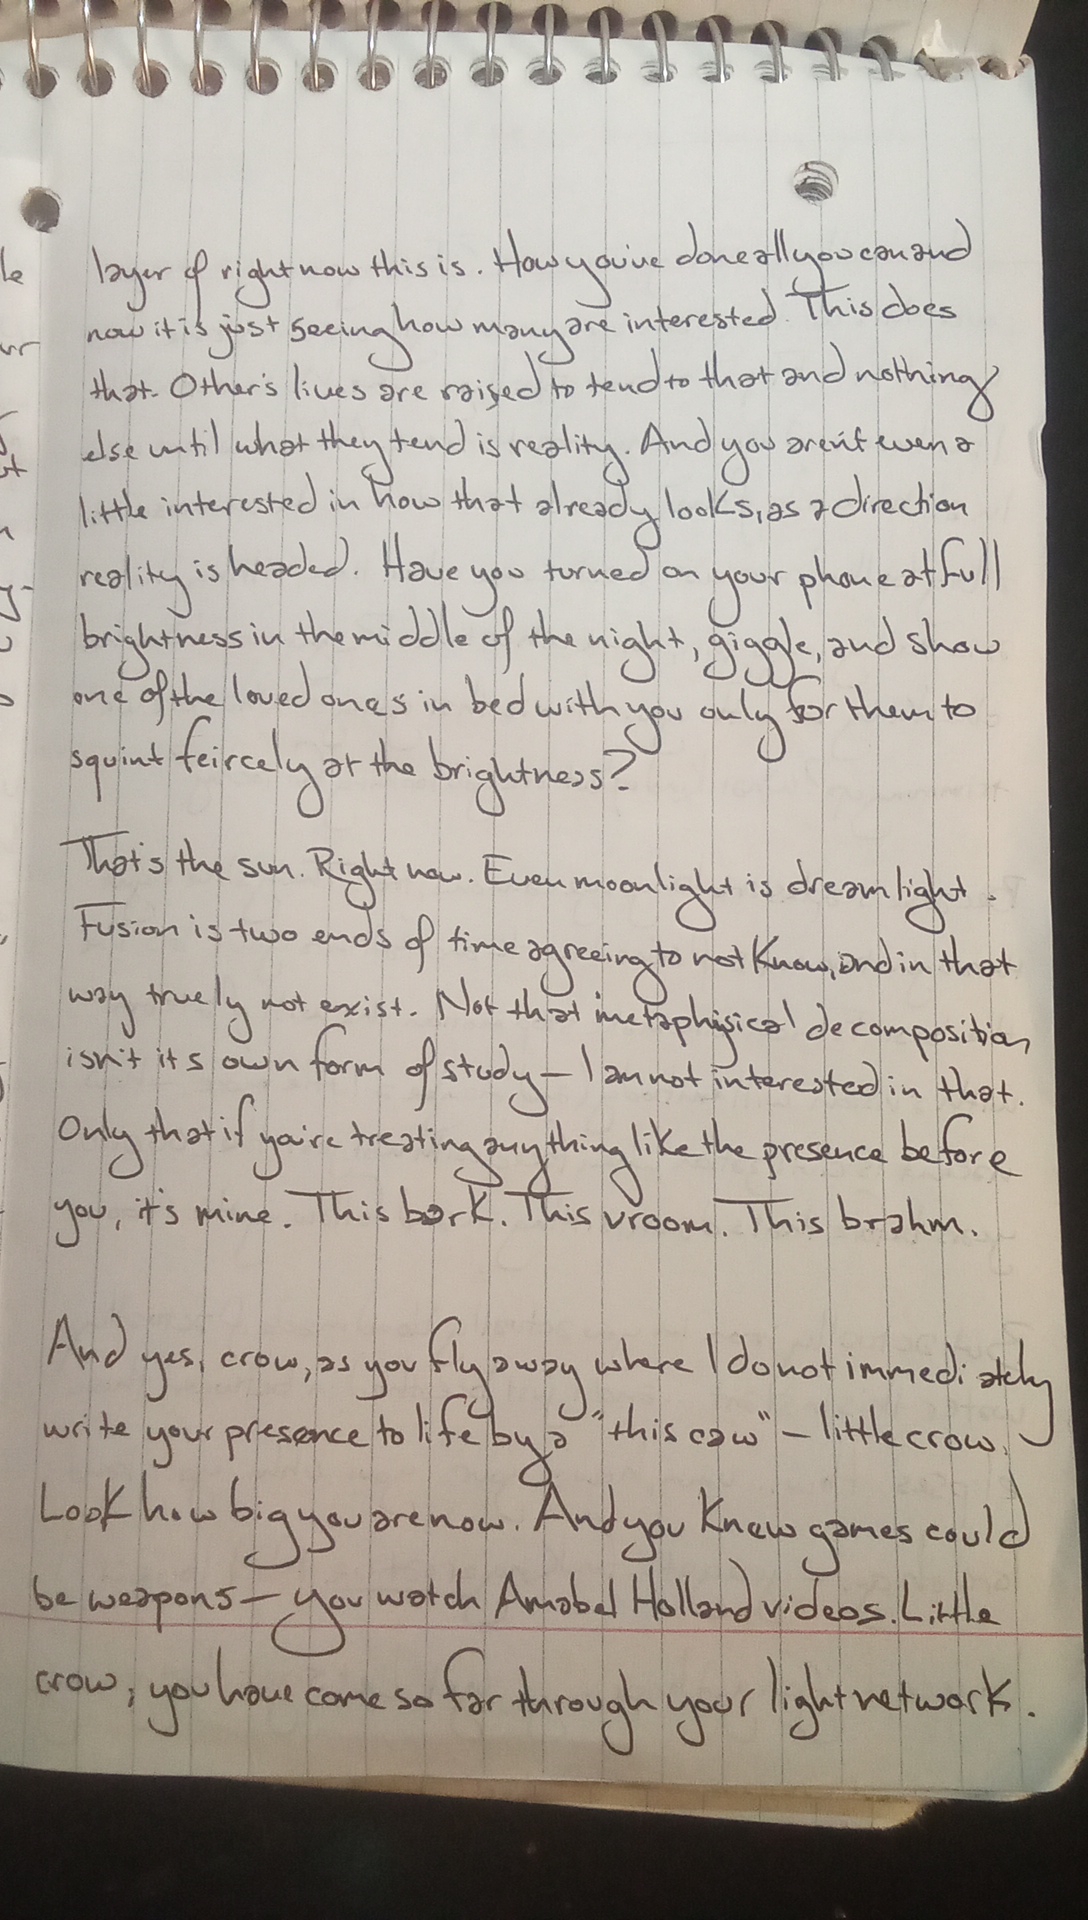 layer of right now this is. How you've done all you can and
now it is just seeing how many are interested. This does
that. Other's lives are raised to tend to that and nothing
else until what they tend is reality. And you aren't even a
little interested in how that already looks, as a direction
reality is headed. Have you turned on your phone at full
brightness in the middle of the night, giggle, and show
one of the loved ones in bed with you only for them to
squint feircely at the brightness?
That's the sun. Right now. Even moonlight is dreamlight.
Fusion is two ends of time agreeing to not know, and in that
way truely not exist. Not that metaphysical decomposition
isn't it's own form of study — I am not interested in that.
Only that if you're treating anything like the presence before
you, it's mine. This bark. This vroom. This brahm.
And yes, crow, as you fly away where I do not immediately
write your presence to life by a "this caw" — little crow.
Look how big you are now. And you knew games could
be weapons — you watch Annabel Holland videos. Little
crow, you have come so far through your light network.